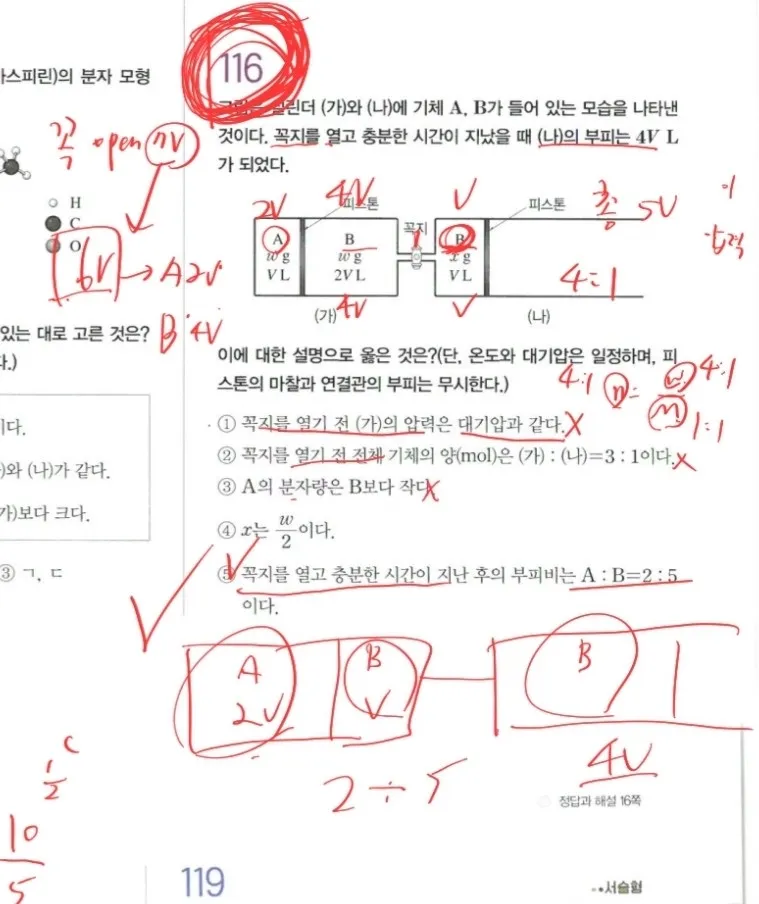 아스피린)의 분자 모형
H
C
O
있는 대로 고른 것은?
다.)
이다.
)와 (나)가 같다.
가)보다 크다.
③ ㄱ, ㄷ
1/2
10
5
116
(가)와 (나)에 기체 A, B가 들어 있는 모습을 나타낸
것이다. 꼭지를 열고 충분한 시간이 지났을 때 (나)의 부피는 4V L
가 되었다.
꼭 open
6V → A 2V
B 4V
2V 4V V 총 5V
피스톤 꼭지 피스톤
A B B
w g w g x g
V L 2V L V L
4:1
압력
(가) 4V V (나)
이에 대한 설명으로 옳은 것은?(단, 온도와 대기압은 일정하며, 피
스톤의 마찰과 연결관의 부피는 무시한다.)
4:1 n = w 4:1
M 1:1
① 꼭지를 열기 전 (가)의 압력은 대기압과 같다. X
② 꼭지를 열기 전 전체 기체의 양(mol)은 (가) : (나)=3 : 1이다. X
③ A의 분자량은 B보다 작다. X
④ x는 w/2이다.
⑤ 꼭지를 열고 충분한 시간이 지난 후의 부피비는 A : B=2 : 5
이다.
A B B
2V V 4V
2 ÷ 5
정답과 해설 16쪽
119
서술형